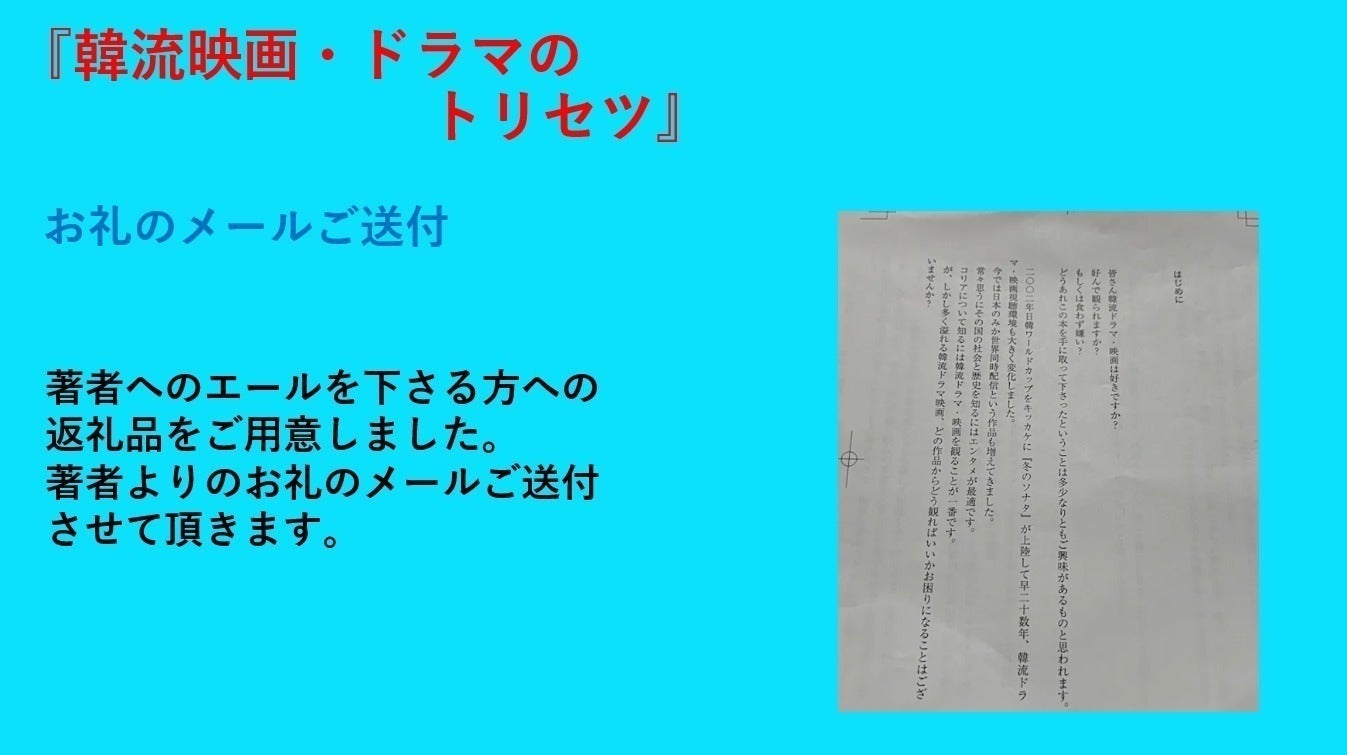 『韓流映画・ドラマの
トリセツ』
お礼のメールご送付
著者へのエールを下さる方への
返礼品をご用意しました。
著者よりのお礼のメールご送付
させて頂きます。
はじめに
皆さん韓流ドラマ・映画は好きですか？
好んで観られますか？
もしくは食わず嫌い？
どうあれこの本を手に取って下さったということは多少なりともご興味があるものと思われます。
二〇〇二年日韓ワールドカップをキッカケに『冬のソナタ』が上陸して早二十数年、韓流ドラ
マ・映画視聴環境も大きく変化しました。
今では日本のみか世界同時配信という作品も増えてきました。
常々思うにその国の社会と歴史を知るにはエンタメが最適です。
コリアについて知るには韓流ドラマ・映画を観ることが一番です。
が、しかし多く溢れる韓流ドラマ映画、どの作品からどう観ればいいかお困りになることはござ
いませんか？